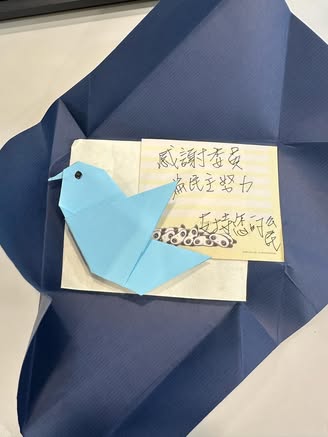 感謝委員
為民主努力
支持您的公
民